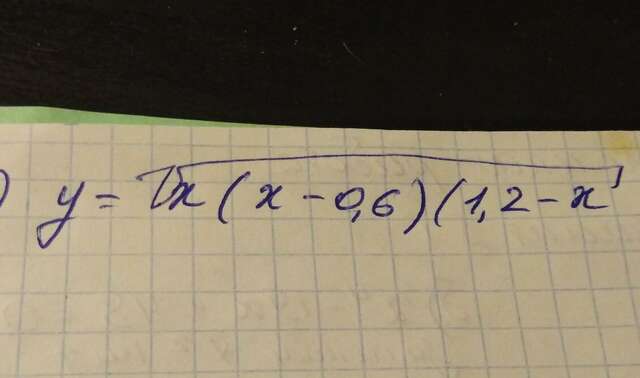 ) y = √x(x - 0,6)(1,2 - x